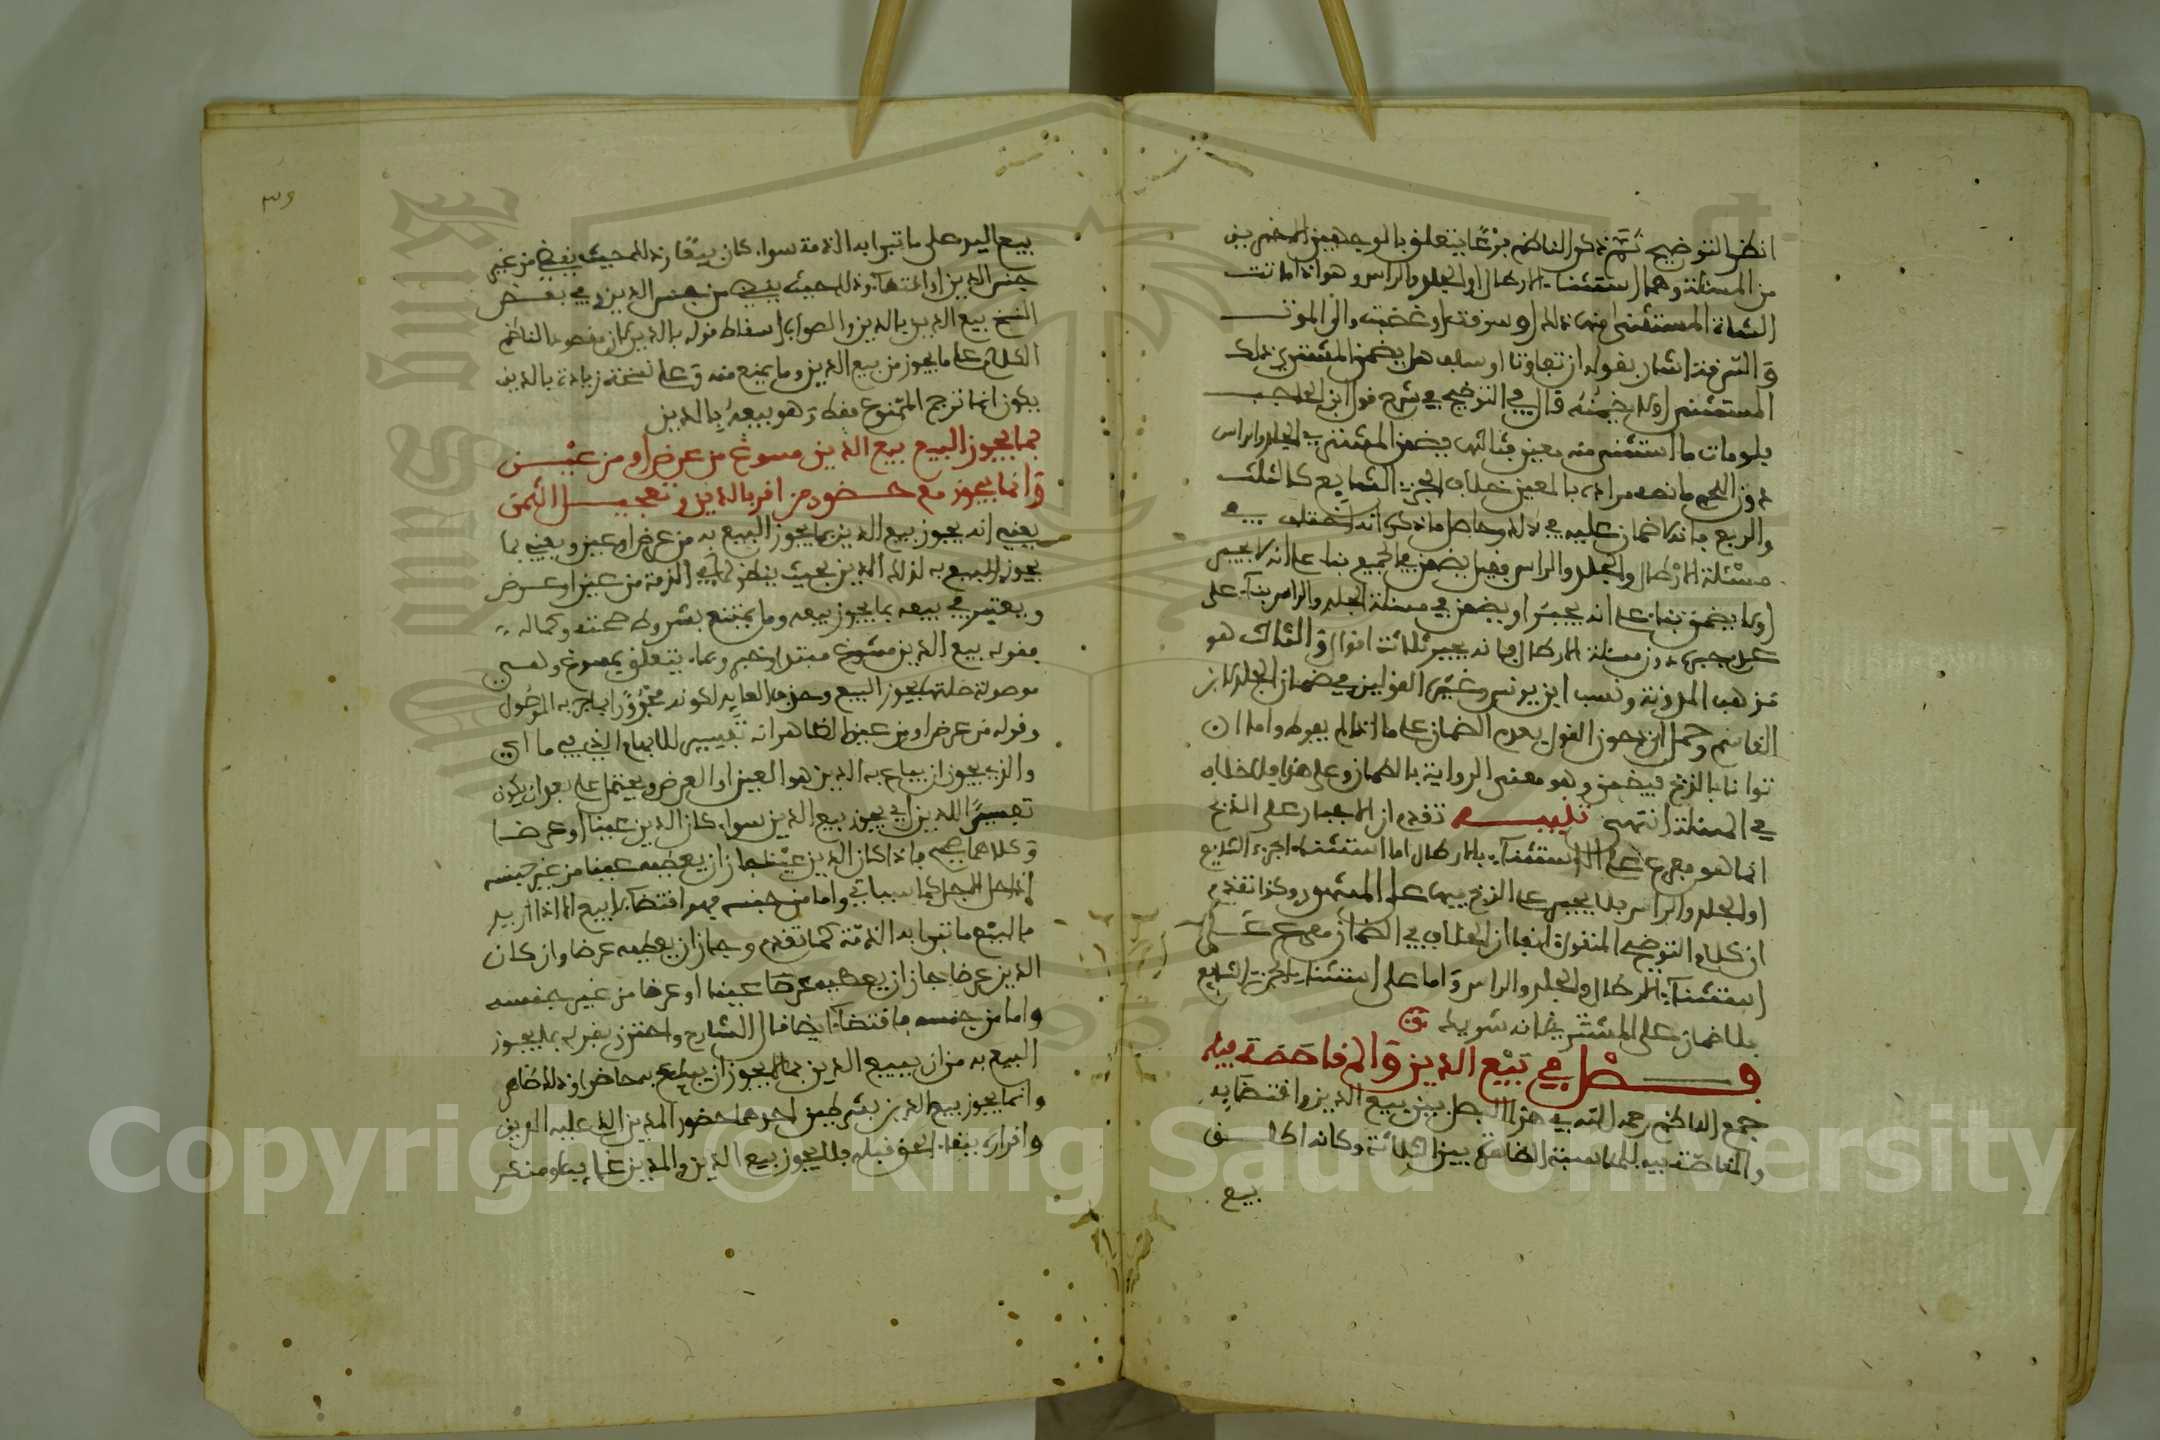 انظر التوضيح ثم ذكر الناظم فرعا يتعلق بالوجهين الاخيرين
من المسئلة وهما استثناء الارطال او الجلد والراس وهو اذا ماتت
الشاة المستثنى منها ذلك او سرقت او غصبت والى الموت
والسرقة اشار بقوله ان تفاوتا او سلب هل يضمن المشتري ذلك
المستثنى او لا يضمنه قال في التوضيح في شرح قول ابن الحاجب
فلو مات ما استثني منه معين فثالثها يضمن المشتري الجلد والراس
دون اللحم ما نصه مراده بالمعين خلاف الجزء الشايع كالثلث
والربع فانه لا ضمان عليه في ذلك وحاصل ما ذكره انه اختلف في
مسئلة الارطال والجلد والراس فقيل يضمن في الجميع بناء على انه لا يجبر
او لا يضمن بناء على انه يجبر او يضمن في مسئلة الجلد والراس بناء على
عدم جبره دون مسئلة الارطال فانه يجبر ثلاثة اقوال والثالث هو
مذهب المدونة ونسب ابن يونس وغيره القولين في ضمان الجلد لابن
القاسم وحمل ابن محوز القول بعدم الضمان على ما اذا لم يفرط واما ان
توانا بالذبح فيضمن وهو معنى الرواية بالضمان وعلى هذا فلا خلاف
في المسئلة انتهى تنبيه تقدم ان الاجبار على الذبح
انما هو مفرع على استثناء الارطال اما استثناء الجزء الشايع
او الجلد والراس فلا يجبر على الذبح فيهما على المشهور وكذا تقدم
ان كلام التوضيح المنقول انفا ان الخلاف في الضمان مفرع على
استثناء الارطال والجلد والراس واما على استثناء الجزء الشايع
فلا ضمان على المشتري فانه شريك
فصل في بيع الدين والمقاصة فيه
جمع الناظم رحمه الله في هذا الفصل بين بيع الدين واقتضايه
والمقاصة فيه للمناسبة الظاهرة بين الثلاثة وكانه اطلق
بيع
بيع الدين على ما تبرا به الذمة سواء كان بيعا وذلك حيث يقضى من غير
جنس الدين او اقتضاء وذلك حيث يقضى من جنس الدين وفي بعض
النسخ بيع الدين بالدين والصواب اسقاط قوله بالدين لان مقصود الناظم
الكلام على ما يجوز من بيع الدين وما يمنع منه وعلى نسخة زيادة بالدين
يكون انما ترجم للممنوع فقط وهو بيعه بالدين
بما يجوز البيع بيع الدين مسوغ من عرض او من عين
وانما يجوز مع حضور من اقر بالدين وتعجيل الثمن
يعني انه يجوز بيع الدين بما يجوز البيع به من عرض او عين ويعني بما
يجوز البيع به لذلك الدين بحيث ينظر لما في الذمة من عين او عرض
ويعتبر في بيعه بما يجوز بيعه وما يمتنع بشروط صحته وكماله
فقوله بيع الدين مسوغ مبتدا وخبر وبما يتعلق بمسوغ وهي
موصولة صلتها يجوز البيع وحذف العايد لكونه مجرورا بما جر به الموصول
وقوله من عرض او من عين الظاهر انه تفسير للابهام الذي في ما اي
والذي يجوز ان يباع به الدين هو العين او العرض ويحتمل على بعد ان يكون
تفسيرا للدين اي يجوز بيع الدين سواء كان الدين عينا او عرضا
وكلاهما صحيح فاذا كان الدين عينا جاز ان يعطيه عينا من غير جنسه
ان حل الاجل كما سياتي واما من جنسه فهو اقتضاء لا بيع الا اذا اريد
بالبيع ما تبرا به الذمة كما تقدم وجاز ان يعطيه عرضا وان كان
الدين عرضا جاز ان يعطيه عرضا عينا او عرضا من غير جنسه
واما من جنسه فاقتضاء ايضا قال الشارح واحترز بقوله بما يجوز
البيع به من ان يبيع الدين بما لا يجوز ان يباع به حاضرا وذلك ظاهر
وانما يجوز بيع الدين بشرطين احدهما حضور المدين الذي عليه الدين
واقراره ببقاء الحق قبله فلا يجوز بيع الدين والمدين غايب او منكر
Copyright © King Saud University